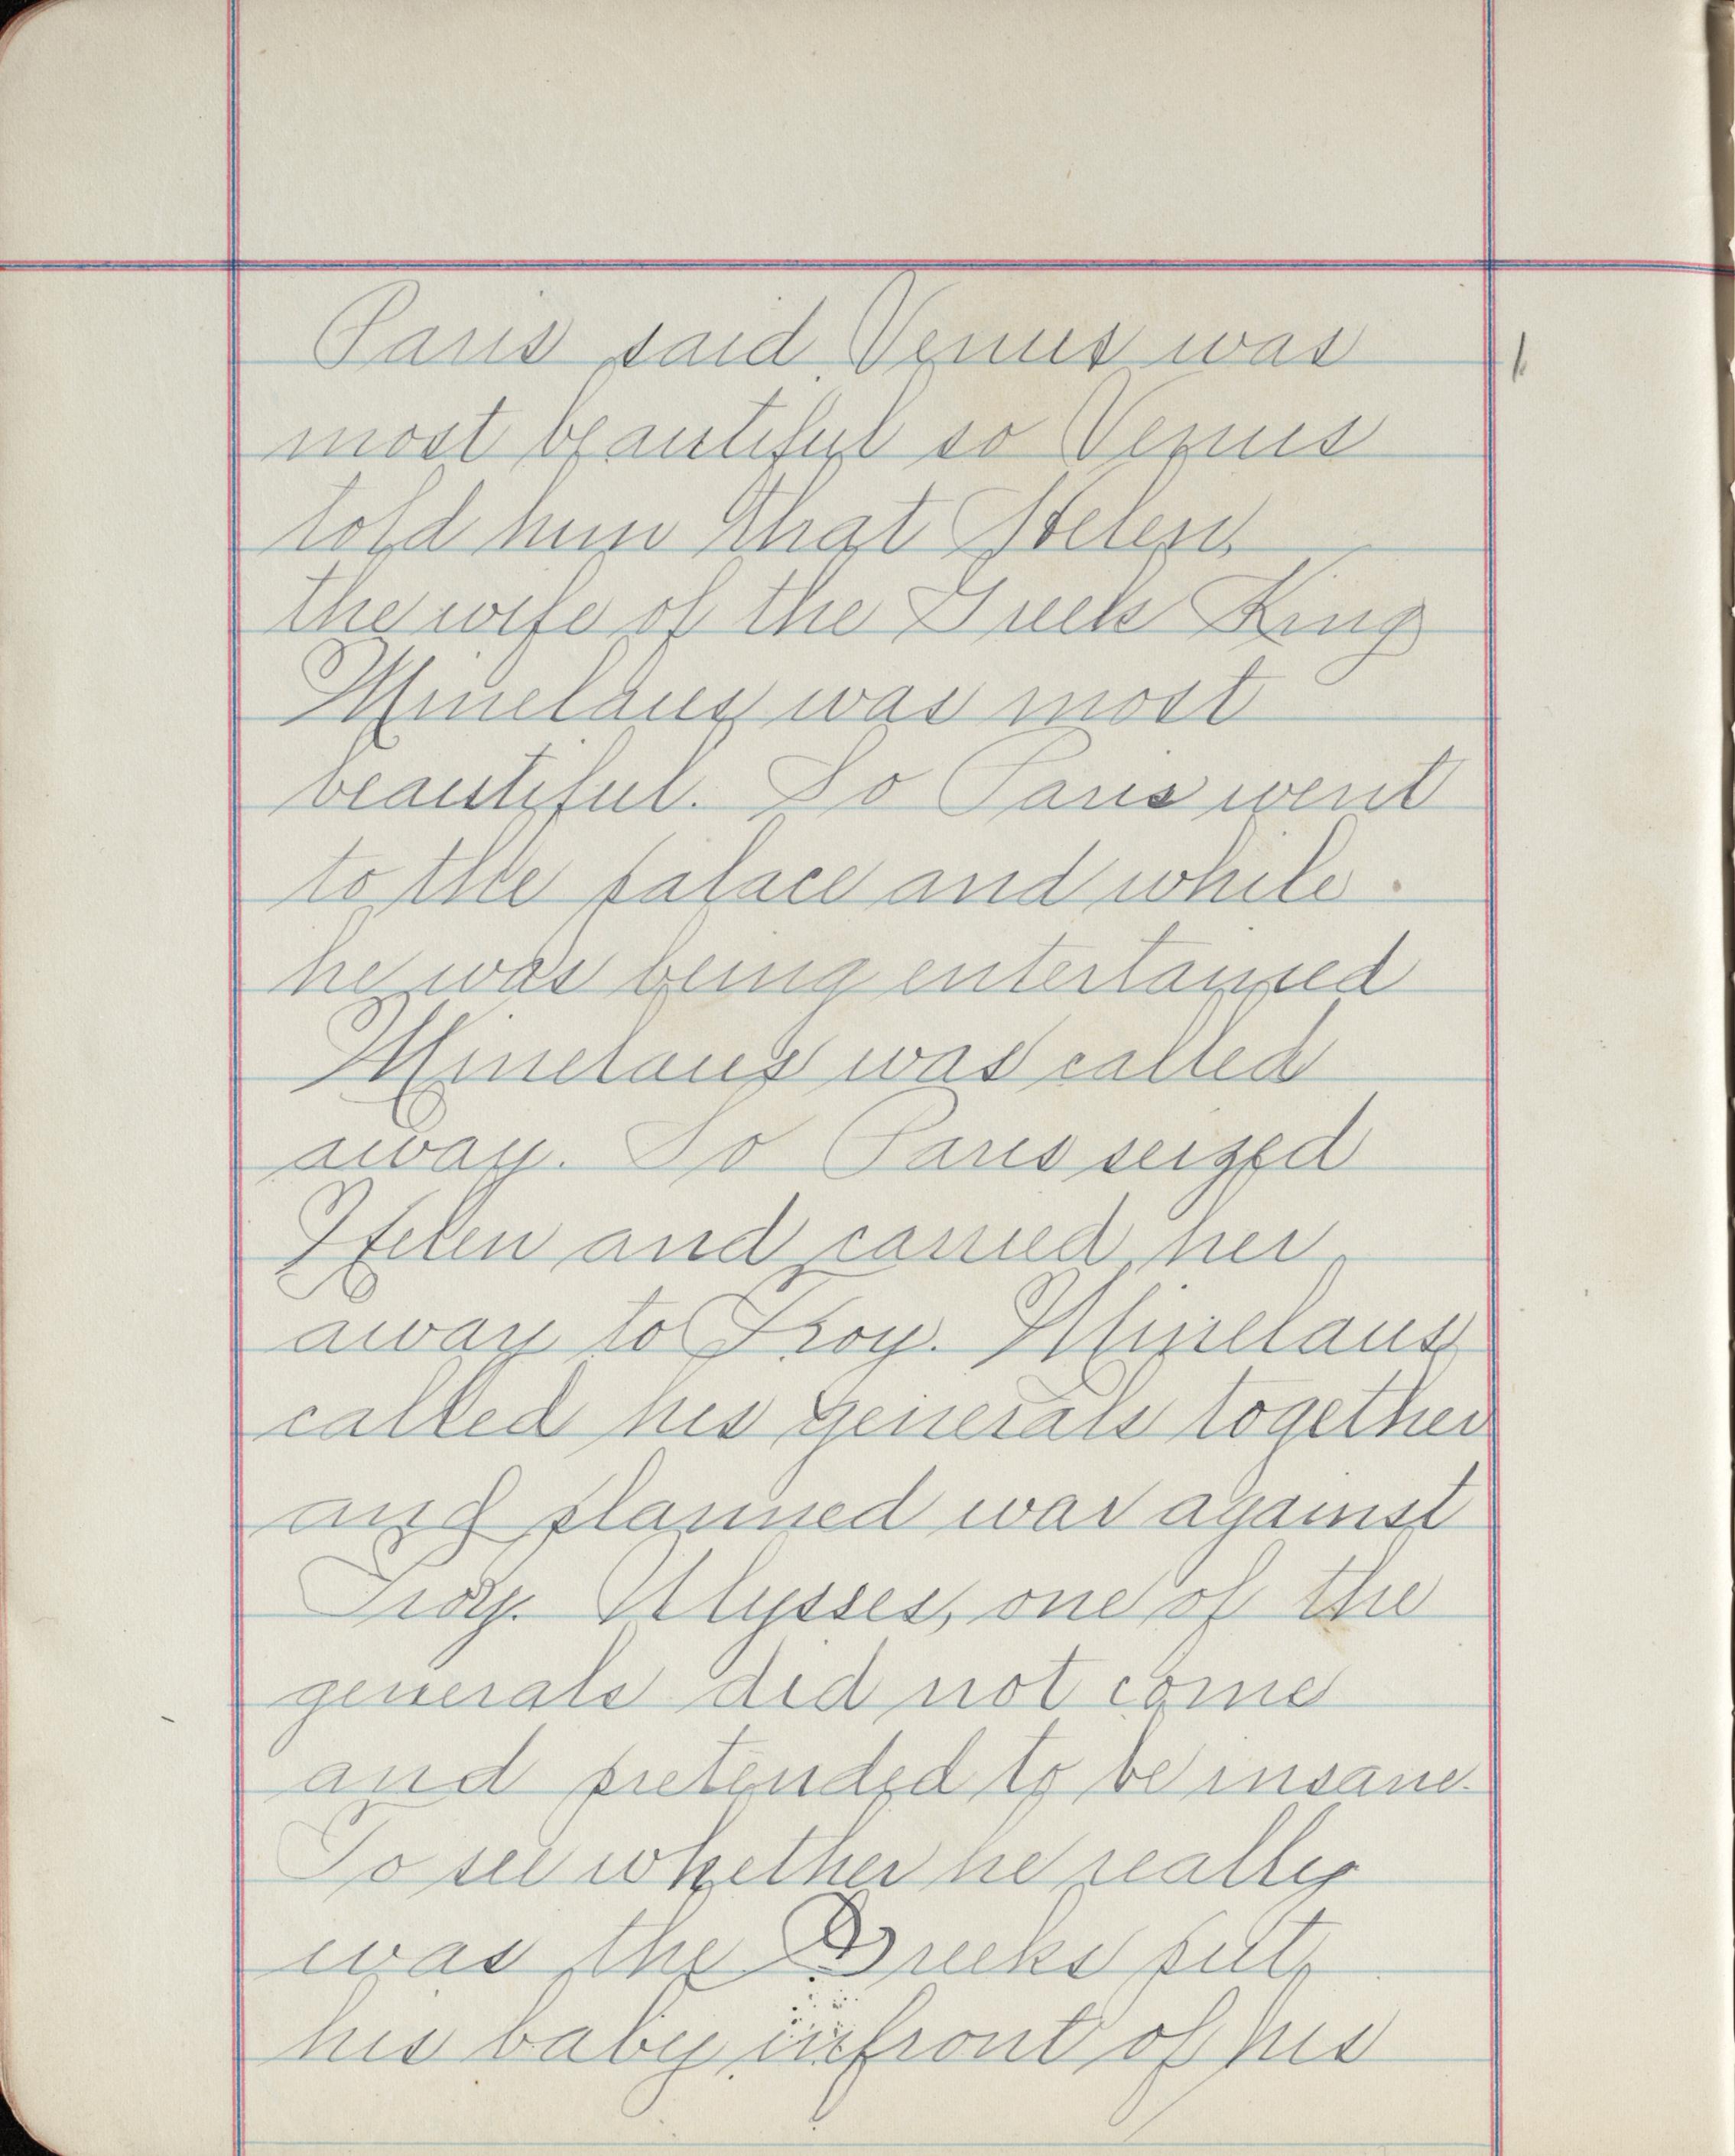 Paris said Venus was
most beautiful so Venus
told him that Helen,
the wife of the Greek King
Minelaus was most
beautiful. So Paris went
to the palace and while
he was being entertained
Minelaus was called
away. So Paris seized
Helen and carried her
away to Troy. Minelaus
called his generals together
and planned war against
Troy. Ulysses, one of the
generals did not come
and pretended to be insane.
To see whether he really
was the Greeks put
his baby infront of his